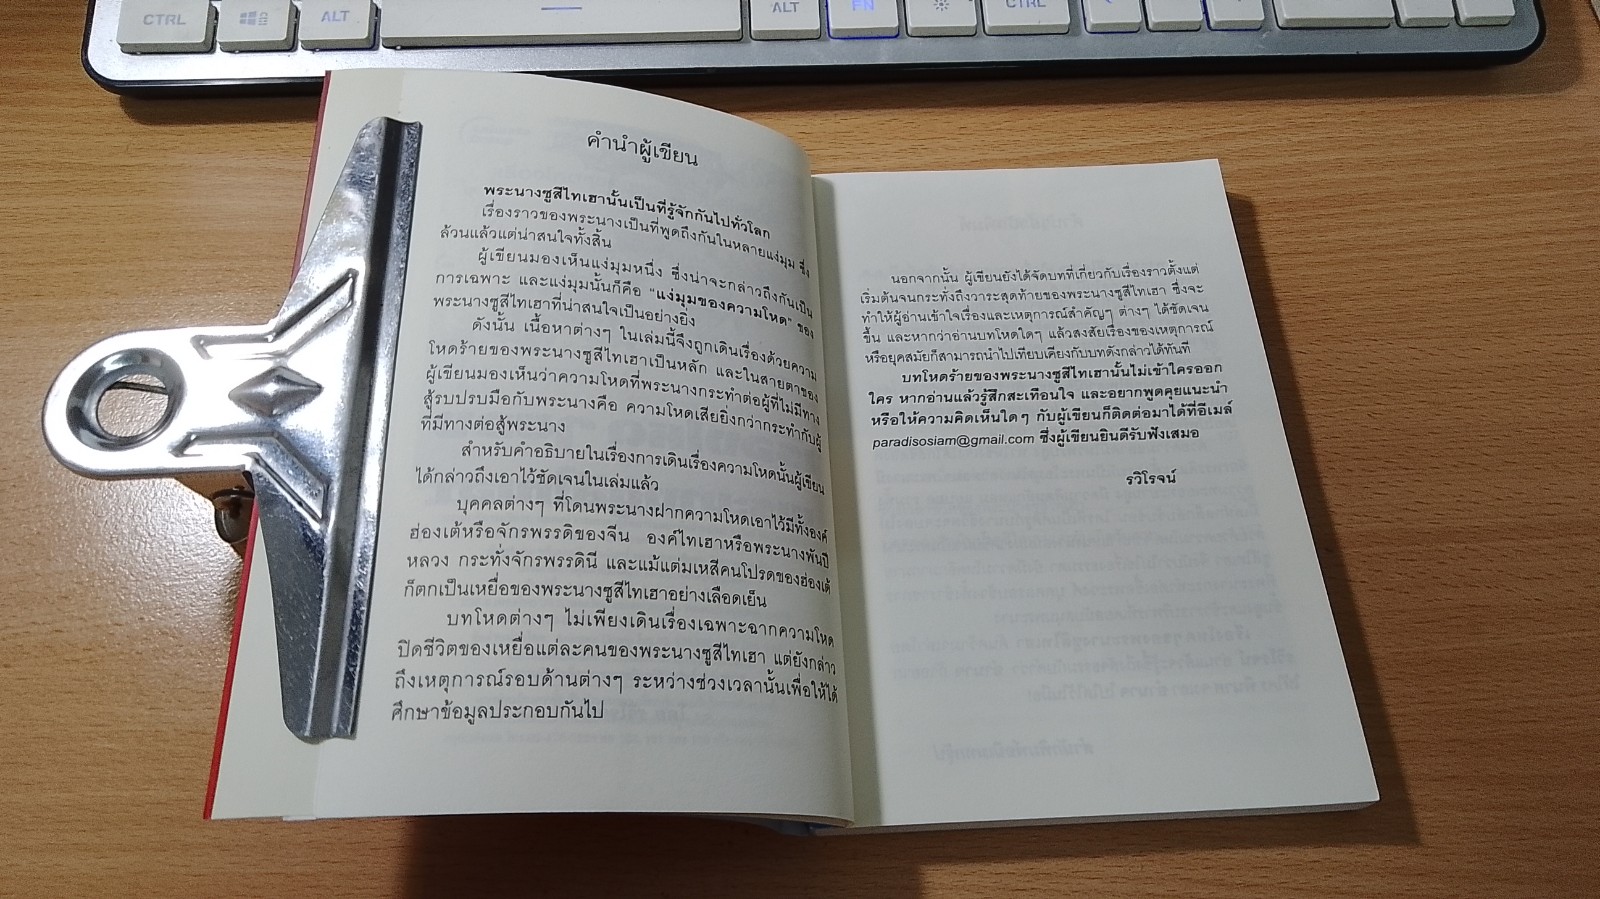 CTRL
ALT
ALT
FN
CTRL
คำนำผู้เขียน
พระนางซูสีไทเฮานั้นเป็นที่รู้จักกันไปทั่วโลก
เรื่องราวของพระนางเป็นที่พูดถึงกันในหลายแง่มุม ซึ่ง
ล้วนแล้วแต่น่าสนใจทั้งสิ้น
ผู้เขียนมองเห็นแง่มุมหนึ่ง ซึ่งน่าจะกล่าวถึงกันเป็น
การเฉพาะ และแง่มุมนั้นก็คือ "แง่มุมของความโหด" ของ
พระนางซูสีไทเฮาที่น่าสนใจเป็นอย่างยิ่ง
ดังนั้น เนื้อหาต่างๆ ในเล่มนี้จึงถูกเดินเรื่องด้วยความ
โหดร้ายของพระนางซูสีไทเฮาเป็นหลัก และในสายตาของ
ผู้เขียนมองเห็นว่าความโหดที่พระนางกระทำต่อผู้ที่ไม่มีทาง
สู้รบปรบมือกับพระนางคือ ความโหดเสียยิ่งกว่ากระทำกับผู้
ที่มีทางต่อสู้พระนาง
สำหรับคำอธิบายในเรื่องการเดินเรื่องความโหดนั้นผู้เขียน
ได้กล่าวถึงเอาไว้ชัดเจนในเล่มแล้ว
บุคคลต่างๆ ที่โดนพระนางฝากความโหดเอาไว้มีทั้งองค์
ฮ่องเต้หรือจักรพรรดิของจีน องค์ไทเฮาหรือพระนางพันปี
หลวง กระทั่งจักรพรรดินี และแม้แต่มเหสีคนโปรดของฮ่องเต้
ก็ตกเป็นเหยื่อของพระนางซูสีไทเฮาอย่างเลือดเย็น
บทโหดต่างๆ ไม่เพียงเดินเรื่องเฉพาะฉากความโหด
ปิดชีวิตของเหยื่อแต่ละคนของพระนางซูสีไทเฮา แต่ยังกล่าว
ถึงเหตุการณ์รอบด้านต่างๆ ระหว่างช่วงเวลานั้นเพื่อให้ได้
ศึกษาข้อมูลประกอบกันไป
นอกจากนั้น ผู้เขียนยังได้จัดบทที่เกี่ยวกับเรื่องราวตั้งแต่
เริ่มต้นจนกระทั่งถึงวาระสุดท้ายของพระนางซูสีไทเฮา ซึ่งจะ
ทำให้ผู้อ่านเข้าใจเรื่องและเหตุการณ์สำคัญๆ ต่างๆ ได้ชัดเจน
ขึ้น และหากกว่าอ่านบทโหดใดๆ แล้วสงสัยเรื่องของเหตุการณ์
หรือยุคสมัยก็สามารถนำไปเทียบเคียงกับบทดังกล่าวได้ทันที
บทโหดร้ายของพระนางซูสีไทเฮานั้นไม่เข้าใครออก
ใคร หากอ่านแล้วรู้สึกสะเทือนใจ และอยากพูดคุยแนะนำ
หรือให้ความคิดเห็นใดๆ กับผู้เขียนก็ติดต่อมาได้ที่อีเมล์
paradisosiam@gmail.com ซึ่งผู้เขียนยินดีรับฟังเสมอ
รวิโรจน์